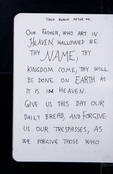 THEN REPEAT AFTER ME:
OUR FATHER, WHO ART IN
HEAVEN HALLOWED BE
THY NAME, THY
KINGDOM COME, THY WILL
BE DONE ON EARTH AS
IT IS IN HEAVEN.
GIVE US THIS DAY OUR
DAILY BREAD, AND FORGIVE
US OUR TRESPASSES, AS
WE FORGIVE THOSE WHO